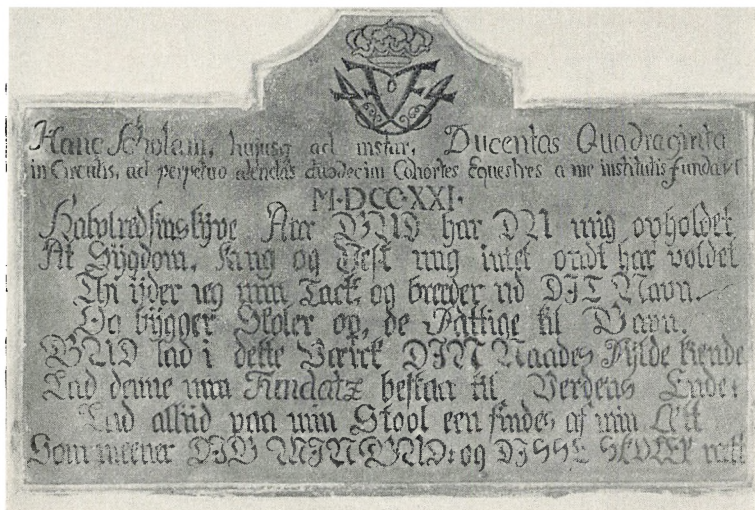 Hanc Scholam, hujusq ad instar, Ducentas Quadraginta
in Circulis, ad perpetuo alendas duodecim Cohortes Equestres a me institutis fundavi
M·DCC·XXI·
Halvtredsinstyve Aar GUD har DU mig opholdet
At Sygdom, Krig og Pest mig intet ondt har voldet
Thi yder ieg min Tack, og breeder ud DIT Navn
Og bygger Skoler op, de Fattige til Gavn.
GUD lad i dette Værck DIN Naades Fylde kiende
Lad denne min Fundatz bestaa til Verdens Ende
Lad altiid paa min Stool een findes af min Æt
Som meener DIG MIN GUD: og DISSE SKOLER rett